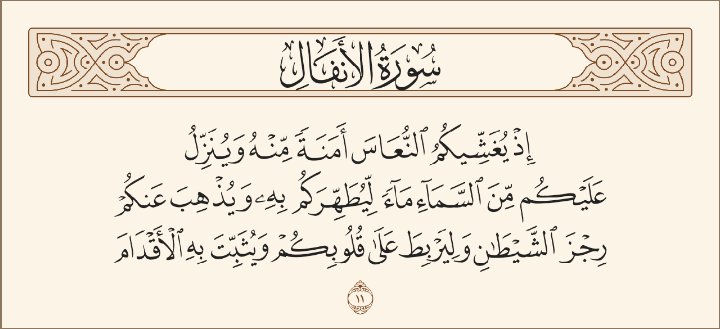 سُورَةُ الأَنفَالِ
إِذْ يُغَشِّيكُمُ ٱلنُّعَاسَ أَمَنَةً مِّنْهُ وَيُنَزِّلُ
عَلَيْكُم مِّنَ ٱلسَّمَآءِ مَآءً لِّيُطَهِّرَكُم بِهِۦ وَيُذْهِبَ عَنكُمْ
رِجْزَ ٱلشَّيْطَٰنِ وَلِيَرْبِطَ عَلَىٰ قُلُوبِكُمْ وَيُثَبِّتَ بِهِ ٱلْأَقْدَامَ
١١